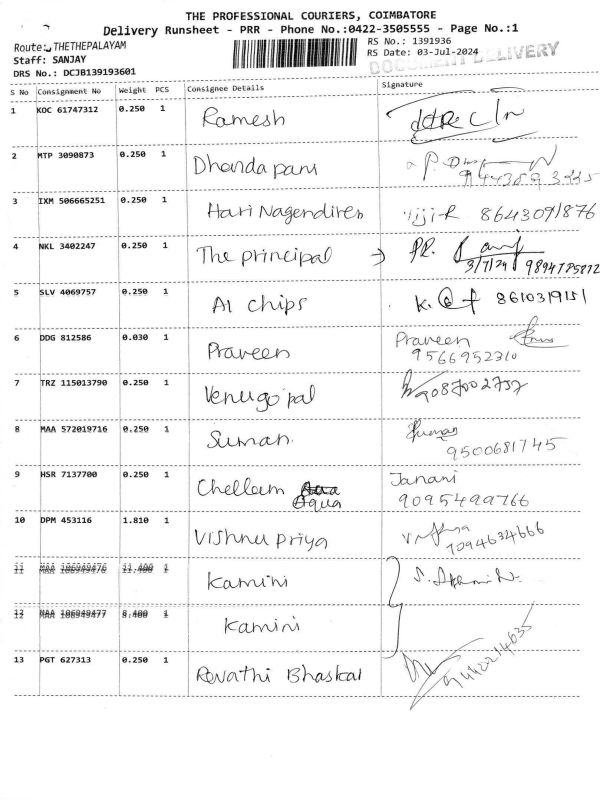 THE PROFESSIONAL COURIERS, COIMBATORE
Delivery Runsheet - PRR - Phone No.:0422-3505555 - Page No.:1
Route: THETHEPALAYAM RS No.: 1391936
Staff: SANJAY RS Date: 03-Jul-2024
DOCUMENT DELIVERY
DRS No.: DCJB139193601
S No Consignment No Weight PCS Consignee Details Signature
1 KOC 61747312 0.250 1 Ramesh
2 MTP 3090873 0.250 1 Dhandapani
3 IXM 506665251 0.250 1 Hari Nagendiren 8643091876
4 NKL 3402247 0.250 1 The principal → PR.
3/7/24
5 SLV 4069757 0.250 1 A1 chips K. 8610319151
6 DDG 812586 0.030 1 Praveen Praveen
9566952310
7 TRZ 115013790 0.250 1 Venugopal 9087002737
8 MAA 572019716 0.250 1 Suman Suman
9500681745
9 HSR 7137700 0.250 1 Chellam Aqua Janani
9095499766
10 DPM 453116 1.810 1 Vishnu priya
7094634666
11 MAA 106949476 11.400 1 Kamini
12 MAA 106949477 8.400 1 Kamini
13 PGT 627313 0.250 1 Revathi Bhaskar